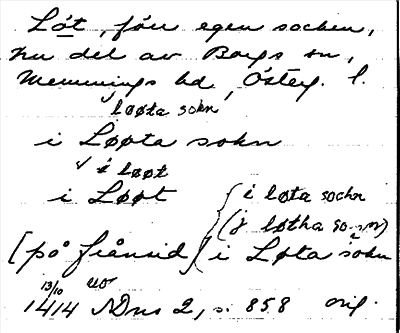 Löt, förr egen socken,
nu del av Borgs sn,
Memmings hd, Österg. l.
løøta sokn
i Løøta sokn
i løøt
i Løøt
i løta sochn
(j løtha so
[på frånsid] i Løta sokn
13/10 uo
1414 NDns 2, s. 858 orig.